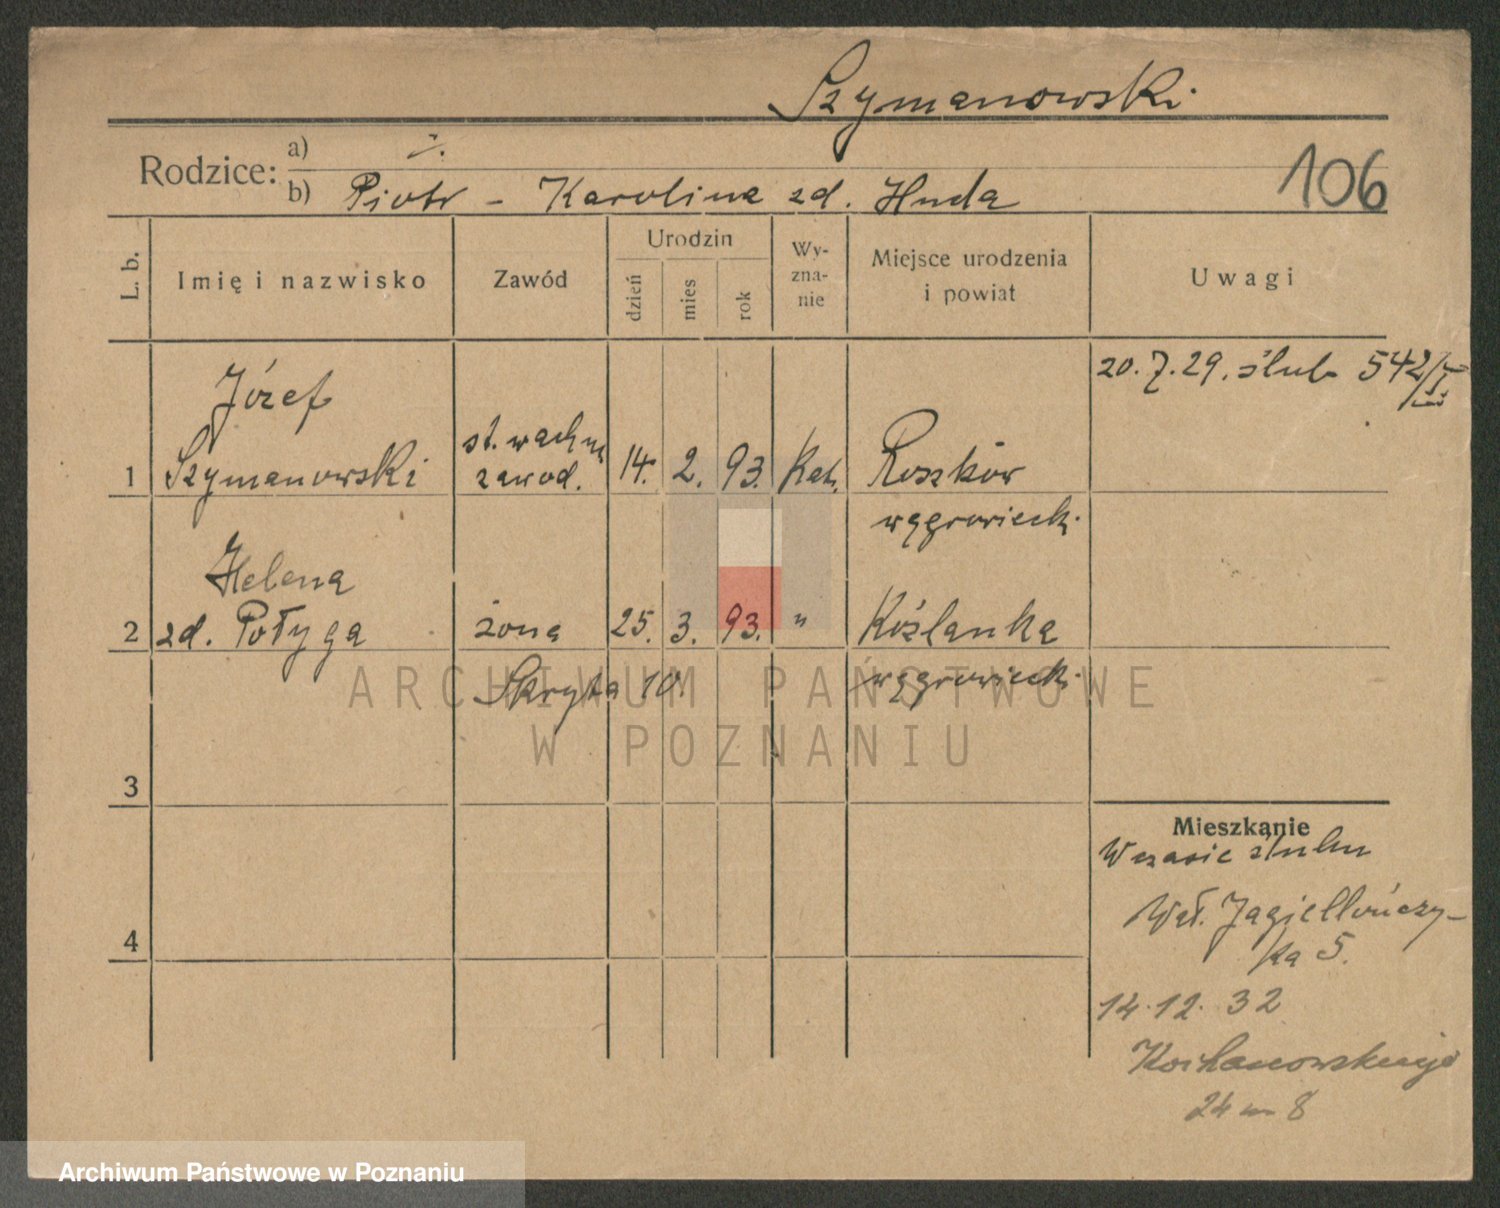 Szymanowski
Rodzice: a) -"-
b) Piotr - Karolina zd. Huda
106
L. b.
Imię i nazwisko
Zawód
Urodzin
dzień
mies
rok
Wy-
zna-
nie
Miejsce urodzenia
i powiat
Uwagi
20.7.29. ślub 542/
1
Józef
Szymanowski
st. wachm
zawod.
14. 2. 93. Kat.
Roszków
wągrowieck.
2
Helena
zd. Połyga
żona
25. 3. 93. "
Koźlanka
wągrowieck.
Skryta 10.
3
4
Mieszkanie
W czasie ślubu
Wał. Jagiellończy-
ka 5.
14.12.32
Kochanowskiego
24 m 8
ARCHIWUM PAŃSTWOWE
W POZNANIU
Archiwum Państwowe w Poznaniu